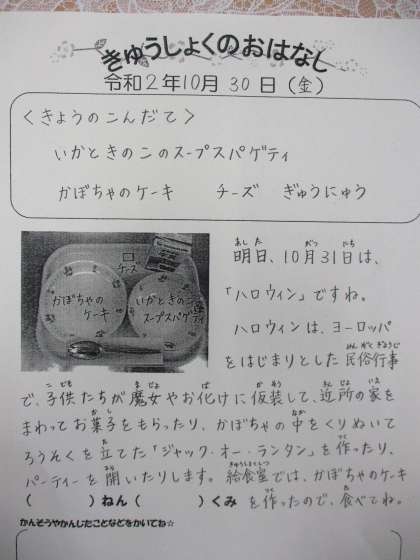 きゅうしょくのおはなし
令和2年10月30日(金)
<きょうのこんだて>
いかときのこのスープスパゲティ
かぼちゃのケーキ チーズ ぎゅうにゅう
チーズ
かぼちゃの
ケーキ
いかときのこの
スープスパゲティ
明日、10月31日は、
「ハロウィン」ですね。
ハロウィンは、ヨーロッパ
をはじまりとした民俗行事
で、子供たちが魔女やお化けに仮装して、近所の家を
まわってお菓子をもらったり、かぼちゃの中をくりぬいて
ろうそくを立てた「ジャック・オー・ランタン」を作ったり、
パーティーを開いたりします。給食室では、かぼちゃのケーキ
( )ねん( )くみ を作ったので、食べてね。
かんそうやかんじたことなどをかいてね☆